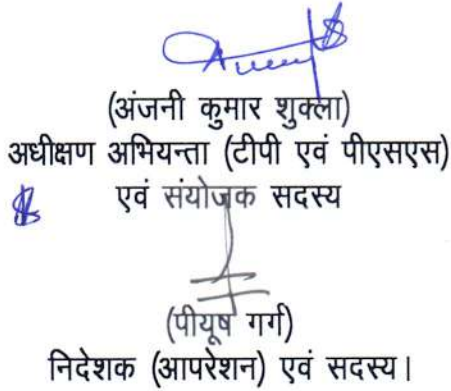 (अंजनी कुमार शुक्ला)
अधीक्षण अभियन्ता (टीपी एवं पीएसएस)
एवं संयोजक सदस्य
(पीयूष गर्ग)
निदेशक (आपरेशन) एवं सदस्य।